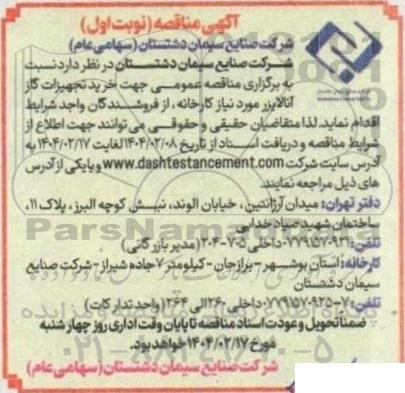 آگهی مناقصه (نوبت اول)
شرکت صنایع سیمان دشتستان (سهامی عام)
شرکت صنایع سیمان دشتستان در نظر دارد نسبت
به برگزاری مناقصه عمومی جهت خرید تجهیزات گاز
آنالایزر مورد نیاز کارخانه، از فروشندگان واجد شرایط
اقدام نماید. لذا متقاضیان حقیقی و حقوقی می توانند جهت اطلاع از
شرایط مناقصه و دریافت اسناد از تاریخ ۱۴۰۴/۰۲/۰۸ لغایت ۱۴۰۴/۰۲/۱۷ به
آدرس سایت شرکت www.dashtestancement.com و یا یکی از آدرس
های ذیل مراجعه نمایند.
دفتر تهران: میدان آرژانتین، خیابان الوند، نبش کوچه البرز، پلاک ۱۱،
ساختمان شهید صیاد خدایی
تلفن: ۷۷۹۱۵۷۰۹۲۱ داخلی ۷۰۵-۲۰۴ (مدیر بازرگانی)
کارخانه: استان بوشهر - برازجان - کیلومتر ۷ جاده شیراز - شرکت صنایع
سیمان دشتستان
تلفن: ۷-۷۷۹۱۵۷۰۹۲۵ داخلی ۲۶۰ الی ۲۶۴ (واحد تدارکات)
ضمنا تحویل و عودت اسناد مناقصه تا پایان وقت اداری روز چهارشنبه
مورخ ۱۴۰۴/۰۲/۱۷ خواهد بود.
شرکت صنایع سیمان دشتستان (سهامی عام)
ParsNamadData
۰۲۱-۸۸۳۴۹۶۷۰-۵